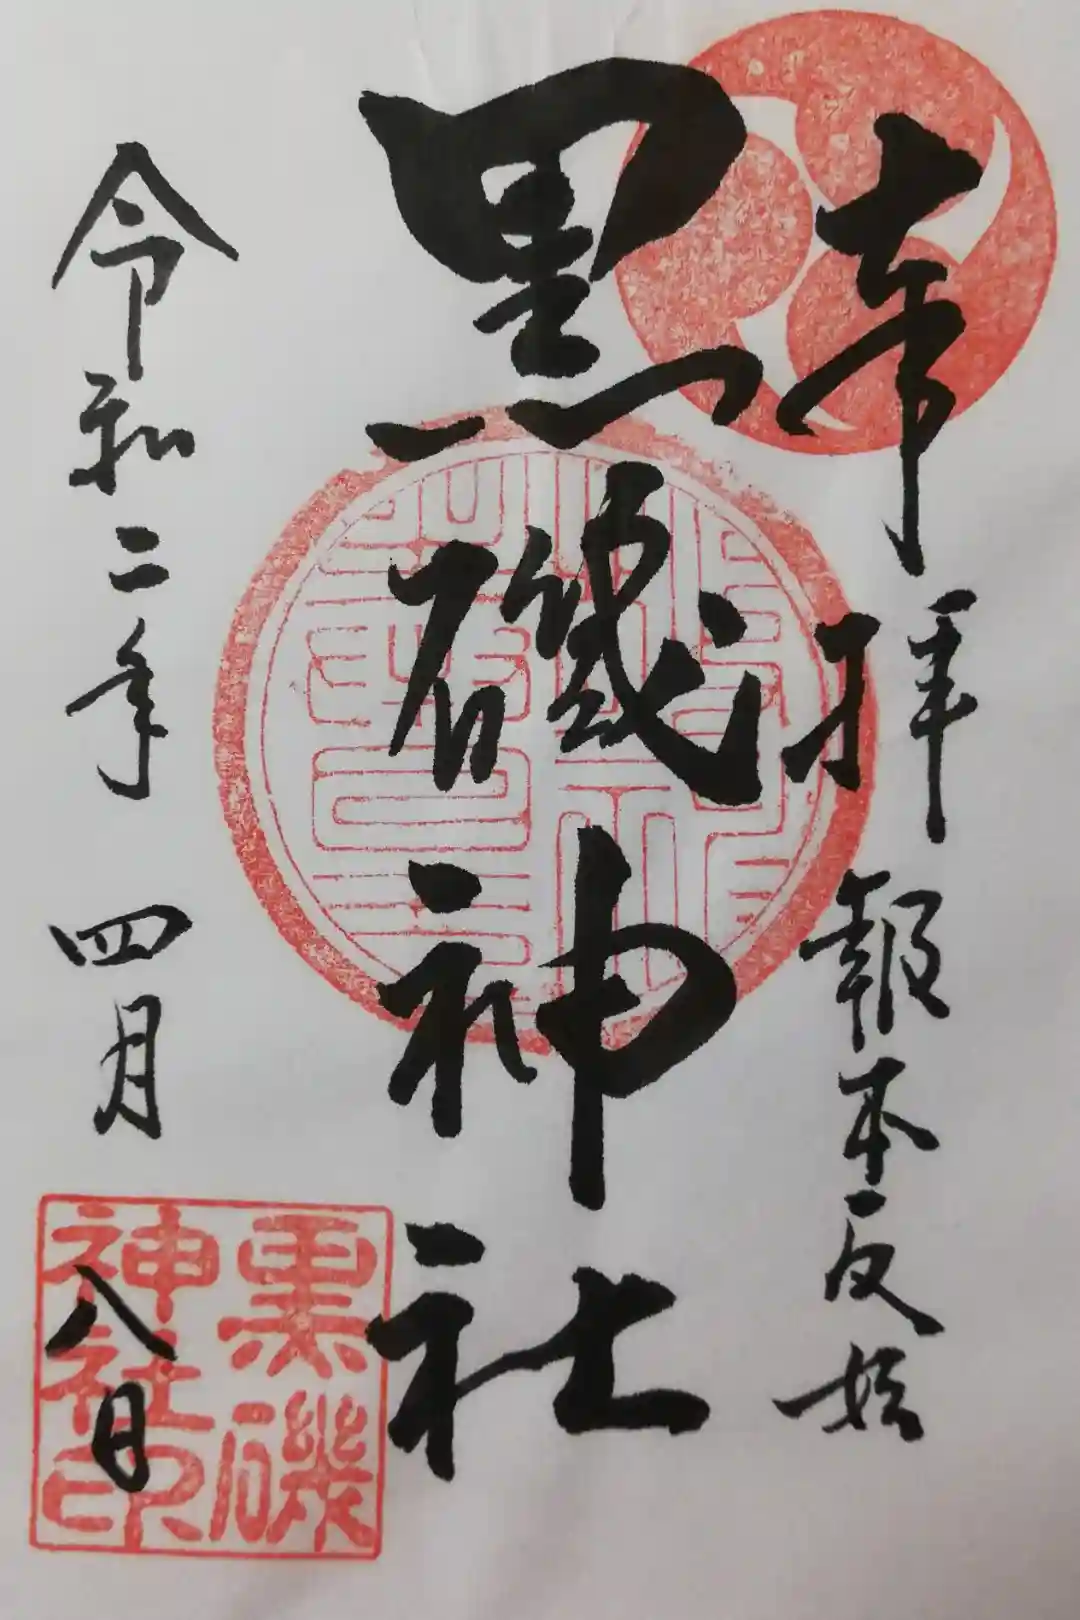 奉拝 報本反始
黒磯神社
令和二年 四月 八日
黒磯
神社印